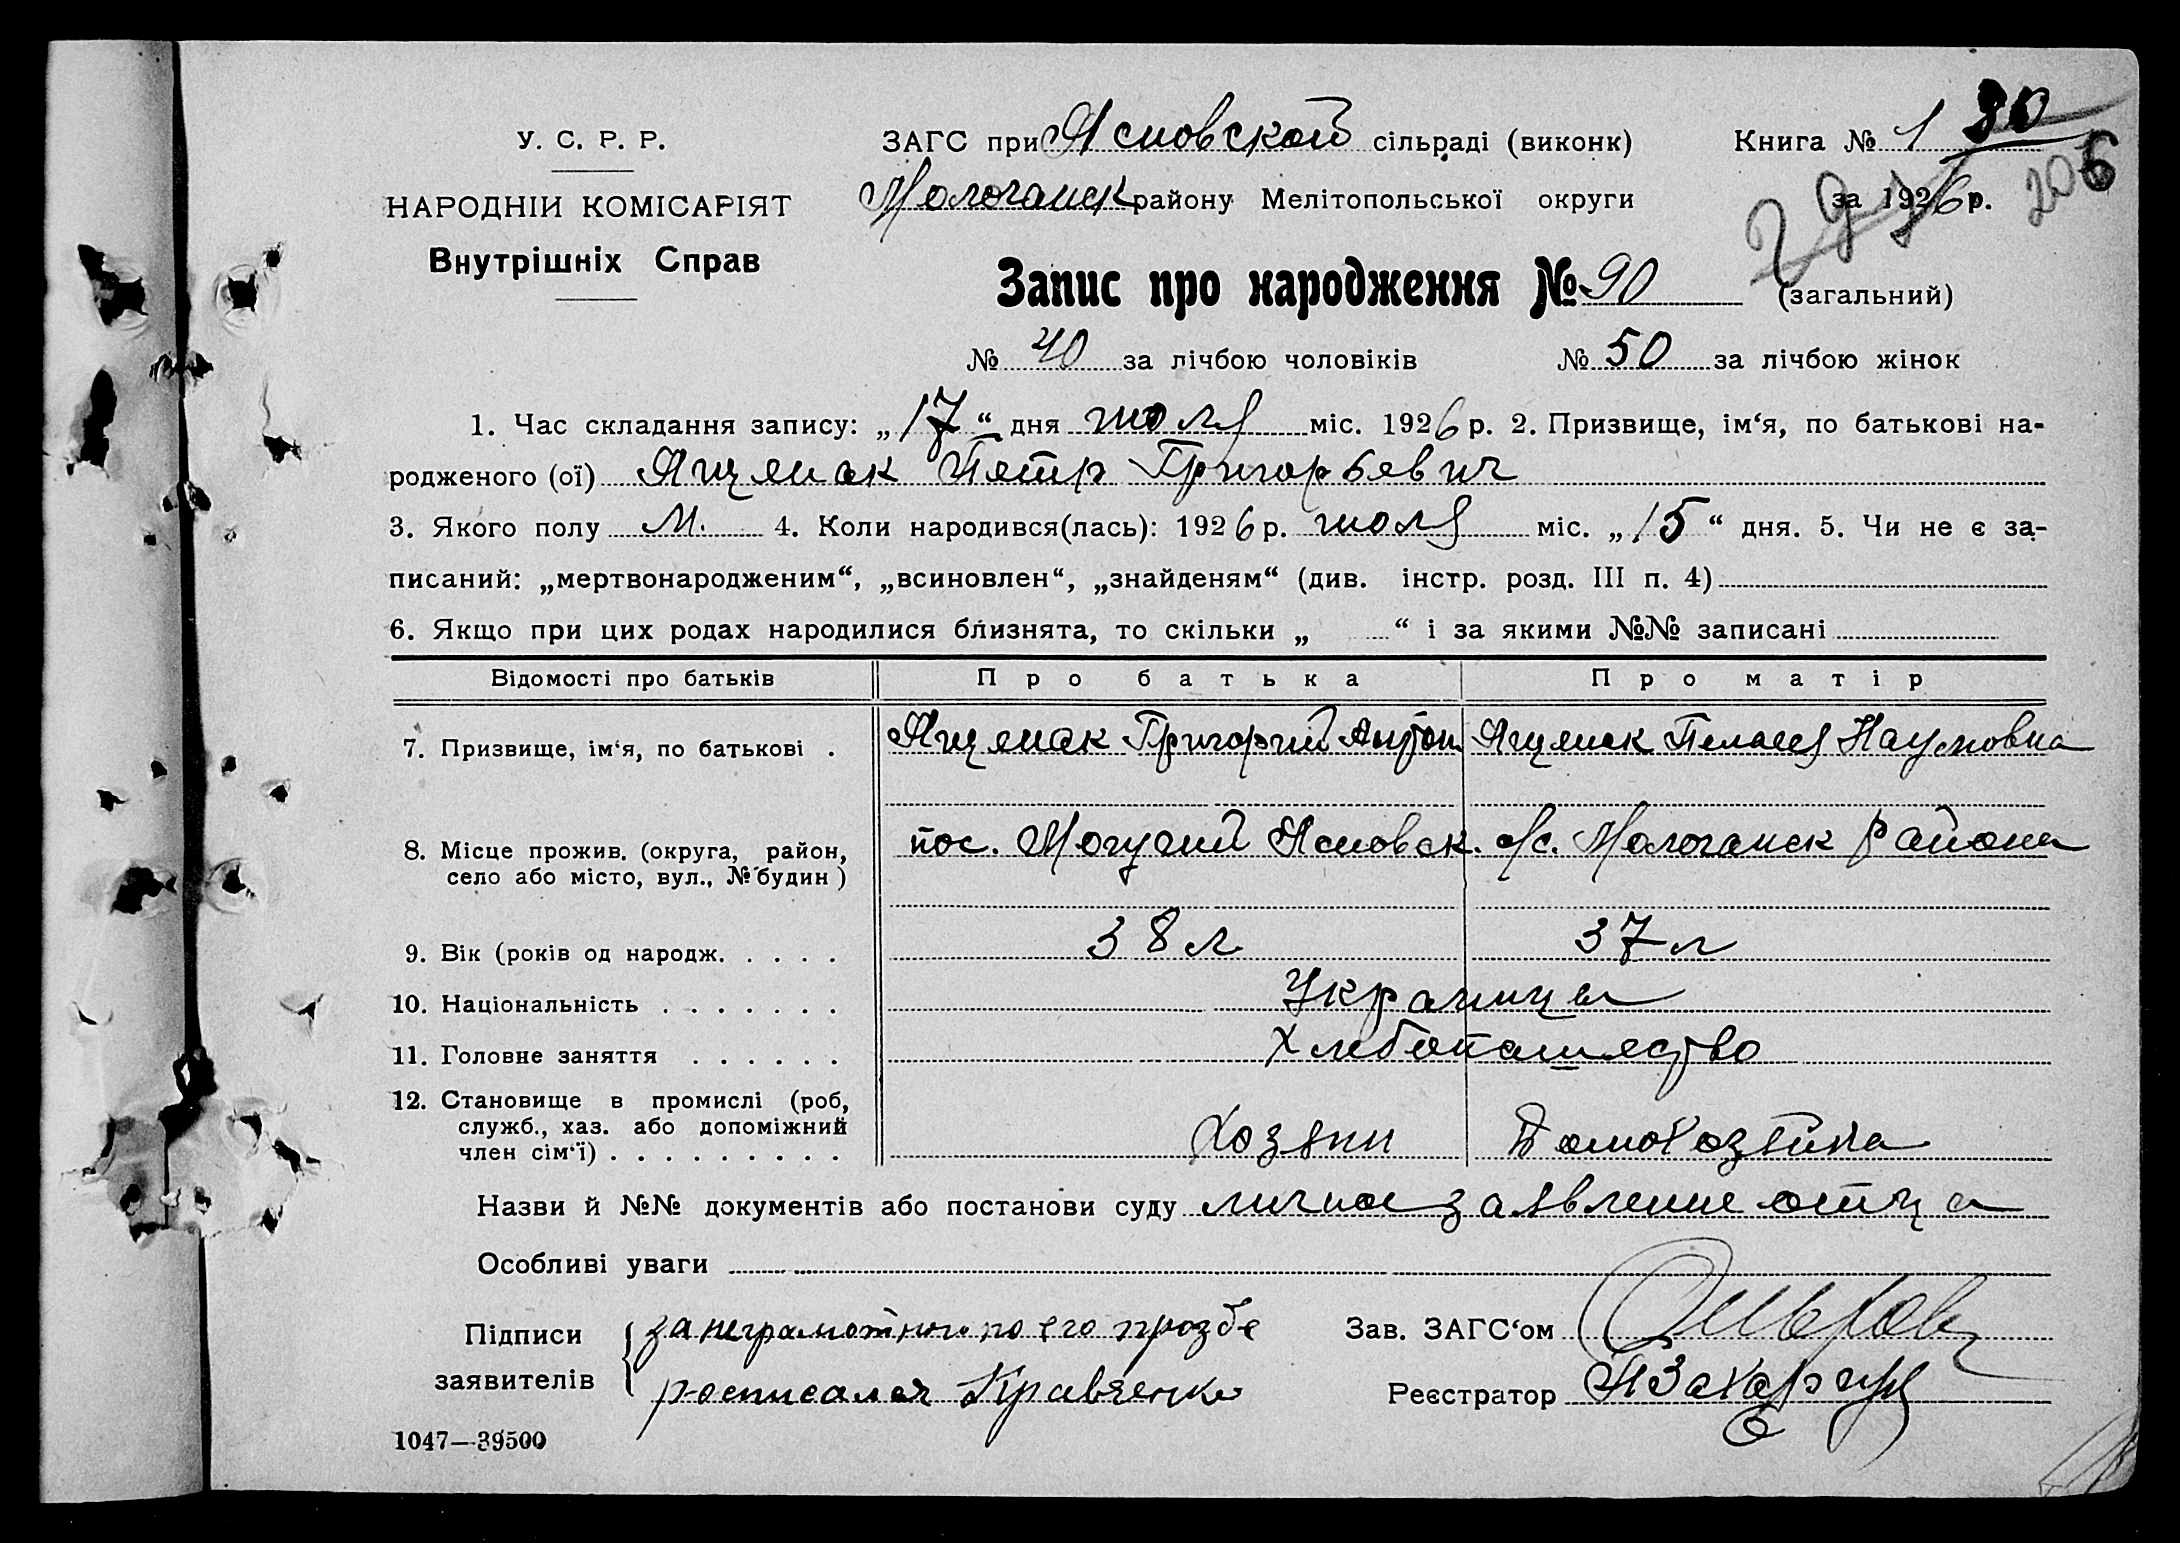 У. С. Р. Р.
НАРОДНІИ КОМІСАРІЯТ
Внутрішніх Справ
ЗАГС при Ясновской сільраді (виконк)
Книга № 1 80
Молочанск району Мелітопольської округи
за 1926 р. 206
Запис про народження № 90 (загальний)
№ 40 за лічбою чоловіків № 50 за лічбою жінок
1. Час складання запису: „17“ дня июля міс. 1926 р. 2. Призвище, ім‘я, по батькові на-
родженого (ої) Ященак Петр Григорьевич
3. Якого полу М. 4. Коли народився(лась): 1926 р. июля міс. „15“ дня. 5. Чи не є за-
писаний: „мертвонародженим“, „всиновлен“, „знайденям“ (див. інстр. розд. III п. 4)
6. Якщо при цих родах народилися близнята, то скільки „ “ і за якими №№ записані
Відомості про батьків Про батька Про матір
7. Призвище, ім‘я, по батькові . Ященак Григорий Антон Ященак Пелагея Наумовна
8. Місце прожив. (округа, район, село або місто, вул., № будин) пос. Могучий Ясновск. с/с. Молочанск района
9. Вік (років од народж. . . . . 38 л 37 л
10. Національність . . . . . . . Украинцы
11. Головне заняття . . . . . . Хлебопашество
12. Становище в промислі (роб, служб., хаз. або допоміжний член сім‘ї) . . . . . . . . . Хозяин Домохозяйка
Назви й №№ документів або постанови суду личное заявление отца
Особливі уваги
Підписи заявителів
за неграмотного по его прозбе
росписался Кравченко
Зав. ЗАГС‘ом
Реєстратор
1047—39500